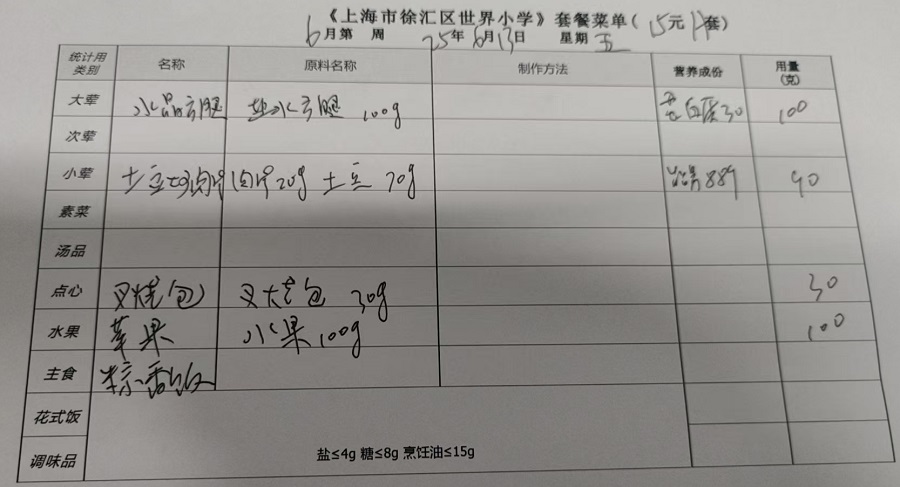 《上海市徐汇区世界小学》套餐菜单(15元/套)
6月第 周 25年6月13日 星期五
统计用类别 名称 原料名称 制作方法 营养成份 用量(克)
大荤 水晶方腿 盐水方腿 100g 蛋白质30 100
次荤
小荤 土豆炒肉片 肉片20g 土豆 70g 889 90
素菜
汤品
点心 叉烧包 叉烧包 30g 30
水果 苹果 水果100g 100
主食 粽香饭
花式饭
调味品 盐≤4g 糖≤8g 烹饪油≤15g